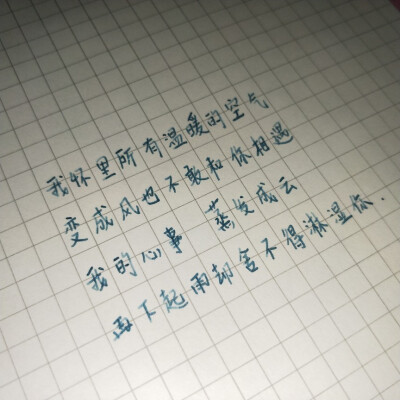 我怀里所有温暖的空气
变成风也不敢和你相遇
我的心事 蒸发成云
再下起雨却舍不得淋湿你.